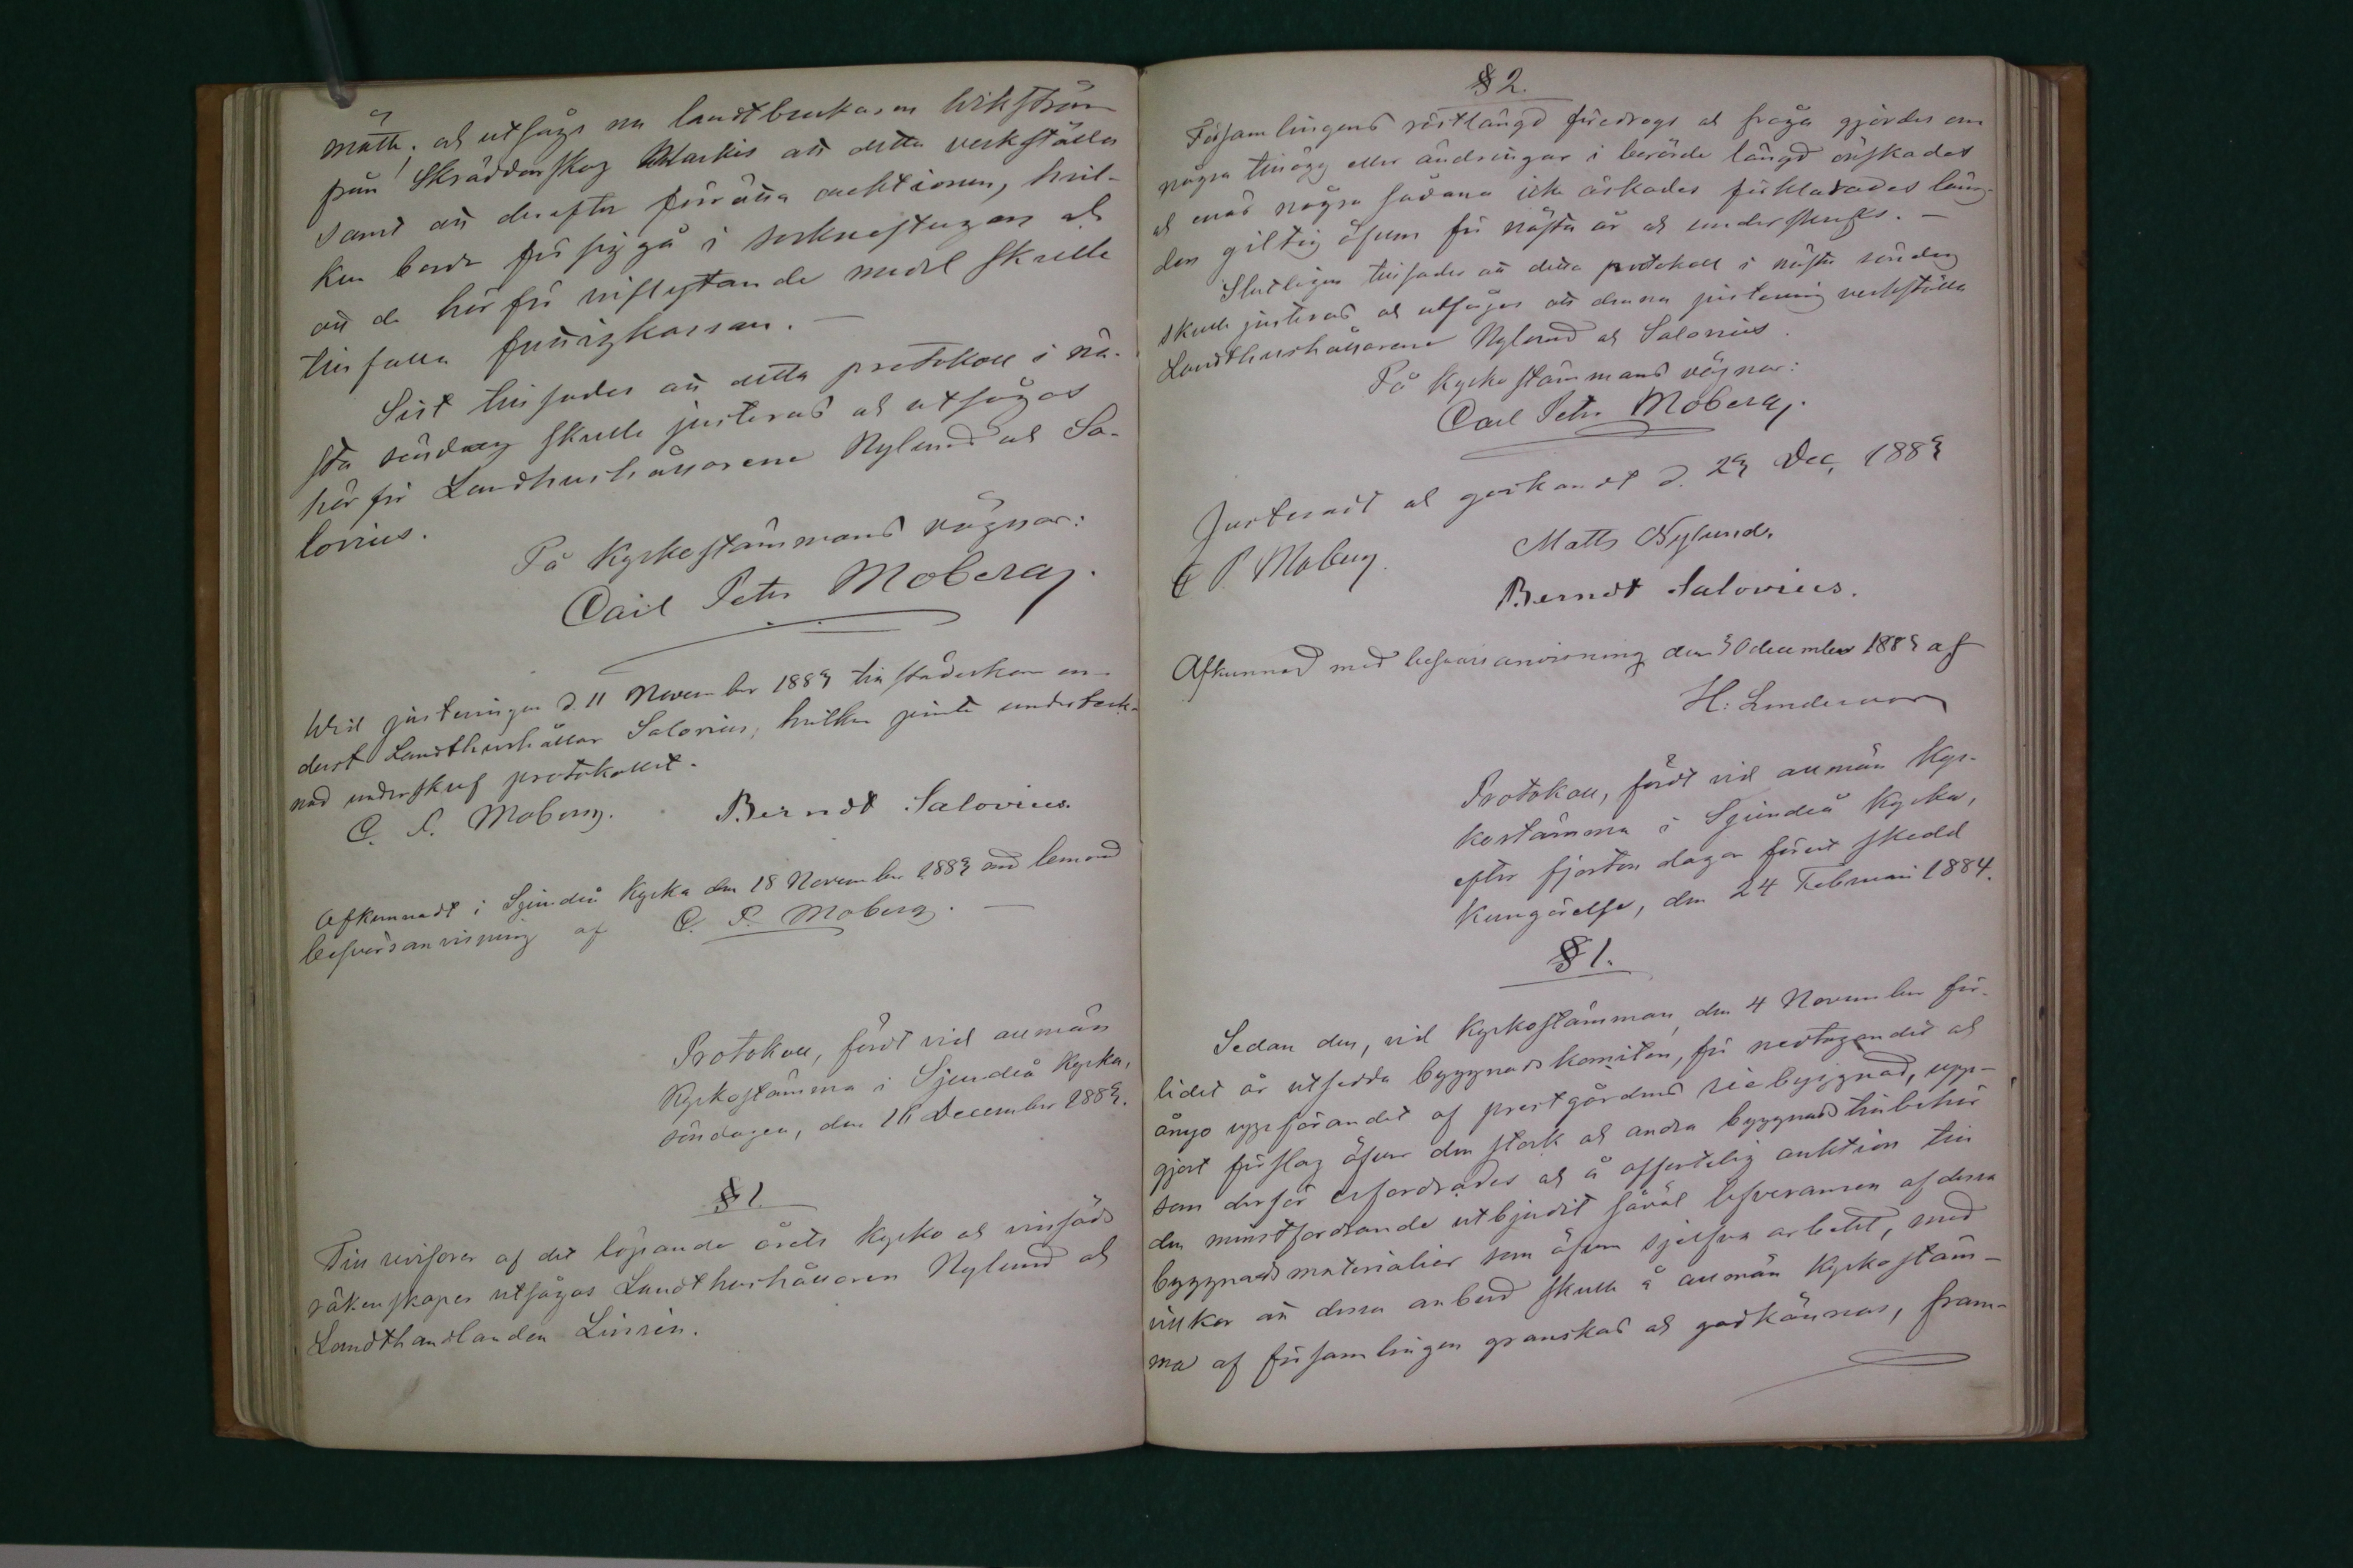 mätte; och utsågs nu landtbrukaren Wikström
från Skräddarskog Markis att detta verkställa
samt att derefter förrätta auktionen, hvil-
ken borde försiggå i socknestugan och
att de härför inflytande medel skulle
tillfalla fattigkassan. —
Sist tillsades att detta protokoll i nä-
sta söndag skulle justeras och utsågos
härför Landthushållarene Nylund och Sa-
lovius.
På Kyrkostämmans vägnar:
Carl Petr Moberg.
Wid justeringen d. 11 November 1883 tillstädeskom en-
dast Landthushållar Salovius, hvilken jemte underteck-
nad underskref protokollet.
C. P. Moberg. Berndt Salovius.
Afkunnadt i Sjundeå Kyrka den 18 November 1883 med lemnad
besvärsanvisning af C. P. Moberg. —
Protokoll, fördt vid allmän
Kyrkostämma i Sjundeå Kyrka,
söndagen, den 16 December 1883.
§ 1.
Till revisorer af det löpande årets Kyrko och
räkenskaper utsågos Landthushållaren Nylund och
Landthandlanden Linsén.
§ 2.
Församlingens röstlängd föredrogs och fråga gjordes om
några tillägg eller ändringar i berörde längd önskades
och enär några sådana icke äskades förklarades läng-
den giltig äfven för nästa år och underskrefs. —
Slutligen tillsades att detta protokoll i nästa söndag
skulle justeras och utsågos att denna justering verkställa
Landthushållarene Nylund och Salovius.
På Kyrkostämmans vägnar:
Carl Petr Moberg.
Justeradt och godkändt d. 23 Dec. 1883
C P. Moberg. Matts Nylund.
Berndt Salovius.
Afkunnad med besvärsanvisning den 30 december 1883 af
H. Lindernoos
Protokoll, fördt vid allmän Kyr-
kostämma i Sjundeå Kyrka,
efter fjorton dagar förut skedd
Kungörelse, den 24 Februari 1884.
§ 1.
Sedan den, vid Kyrkostämman, den 4 November för-
lidet år utsedda byggnadskomiten, för nedtagandet och
ånyo uppförandet af prestgårdens riebyggnad, upp-
gjort förslag öfver den stock och andra byggnads tillbehör
som derför erfordrades och å offentlig auktion till
den minstfordrande utbjudit såväl lefveransen af dessa
byggnadsmaterialier som äfven sjelfva arbetet, med
vilkor att dessa anbud skulle å allmän Kyrkostäm-
ma af församlingen granskas och godkännas, fram-